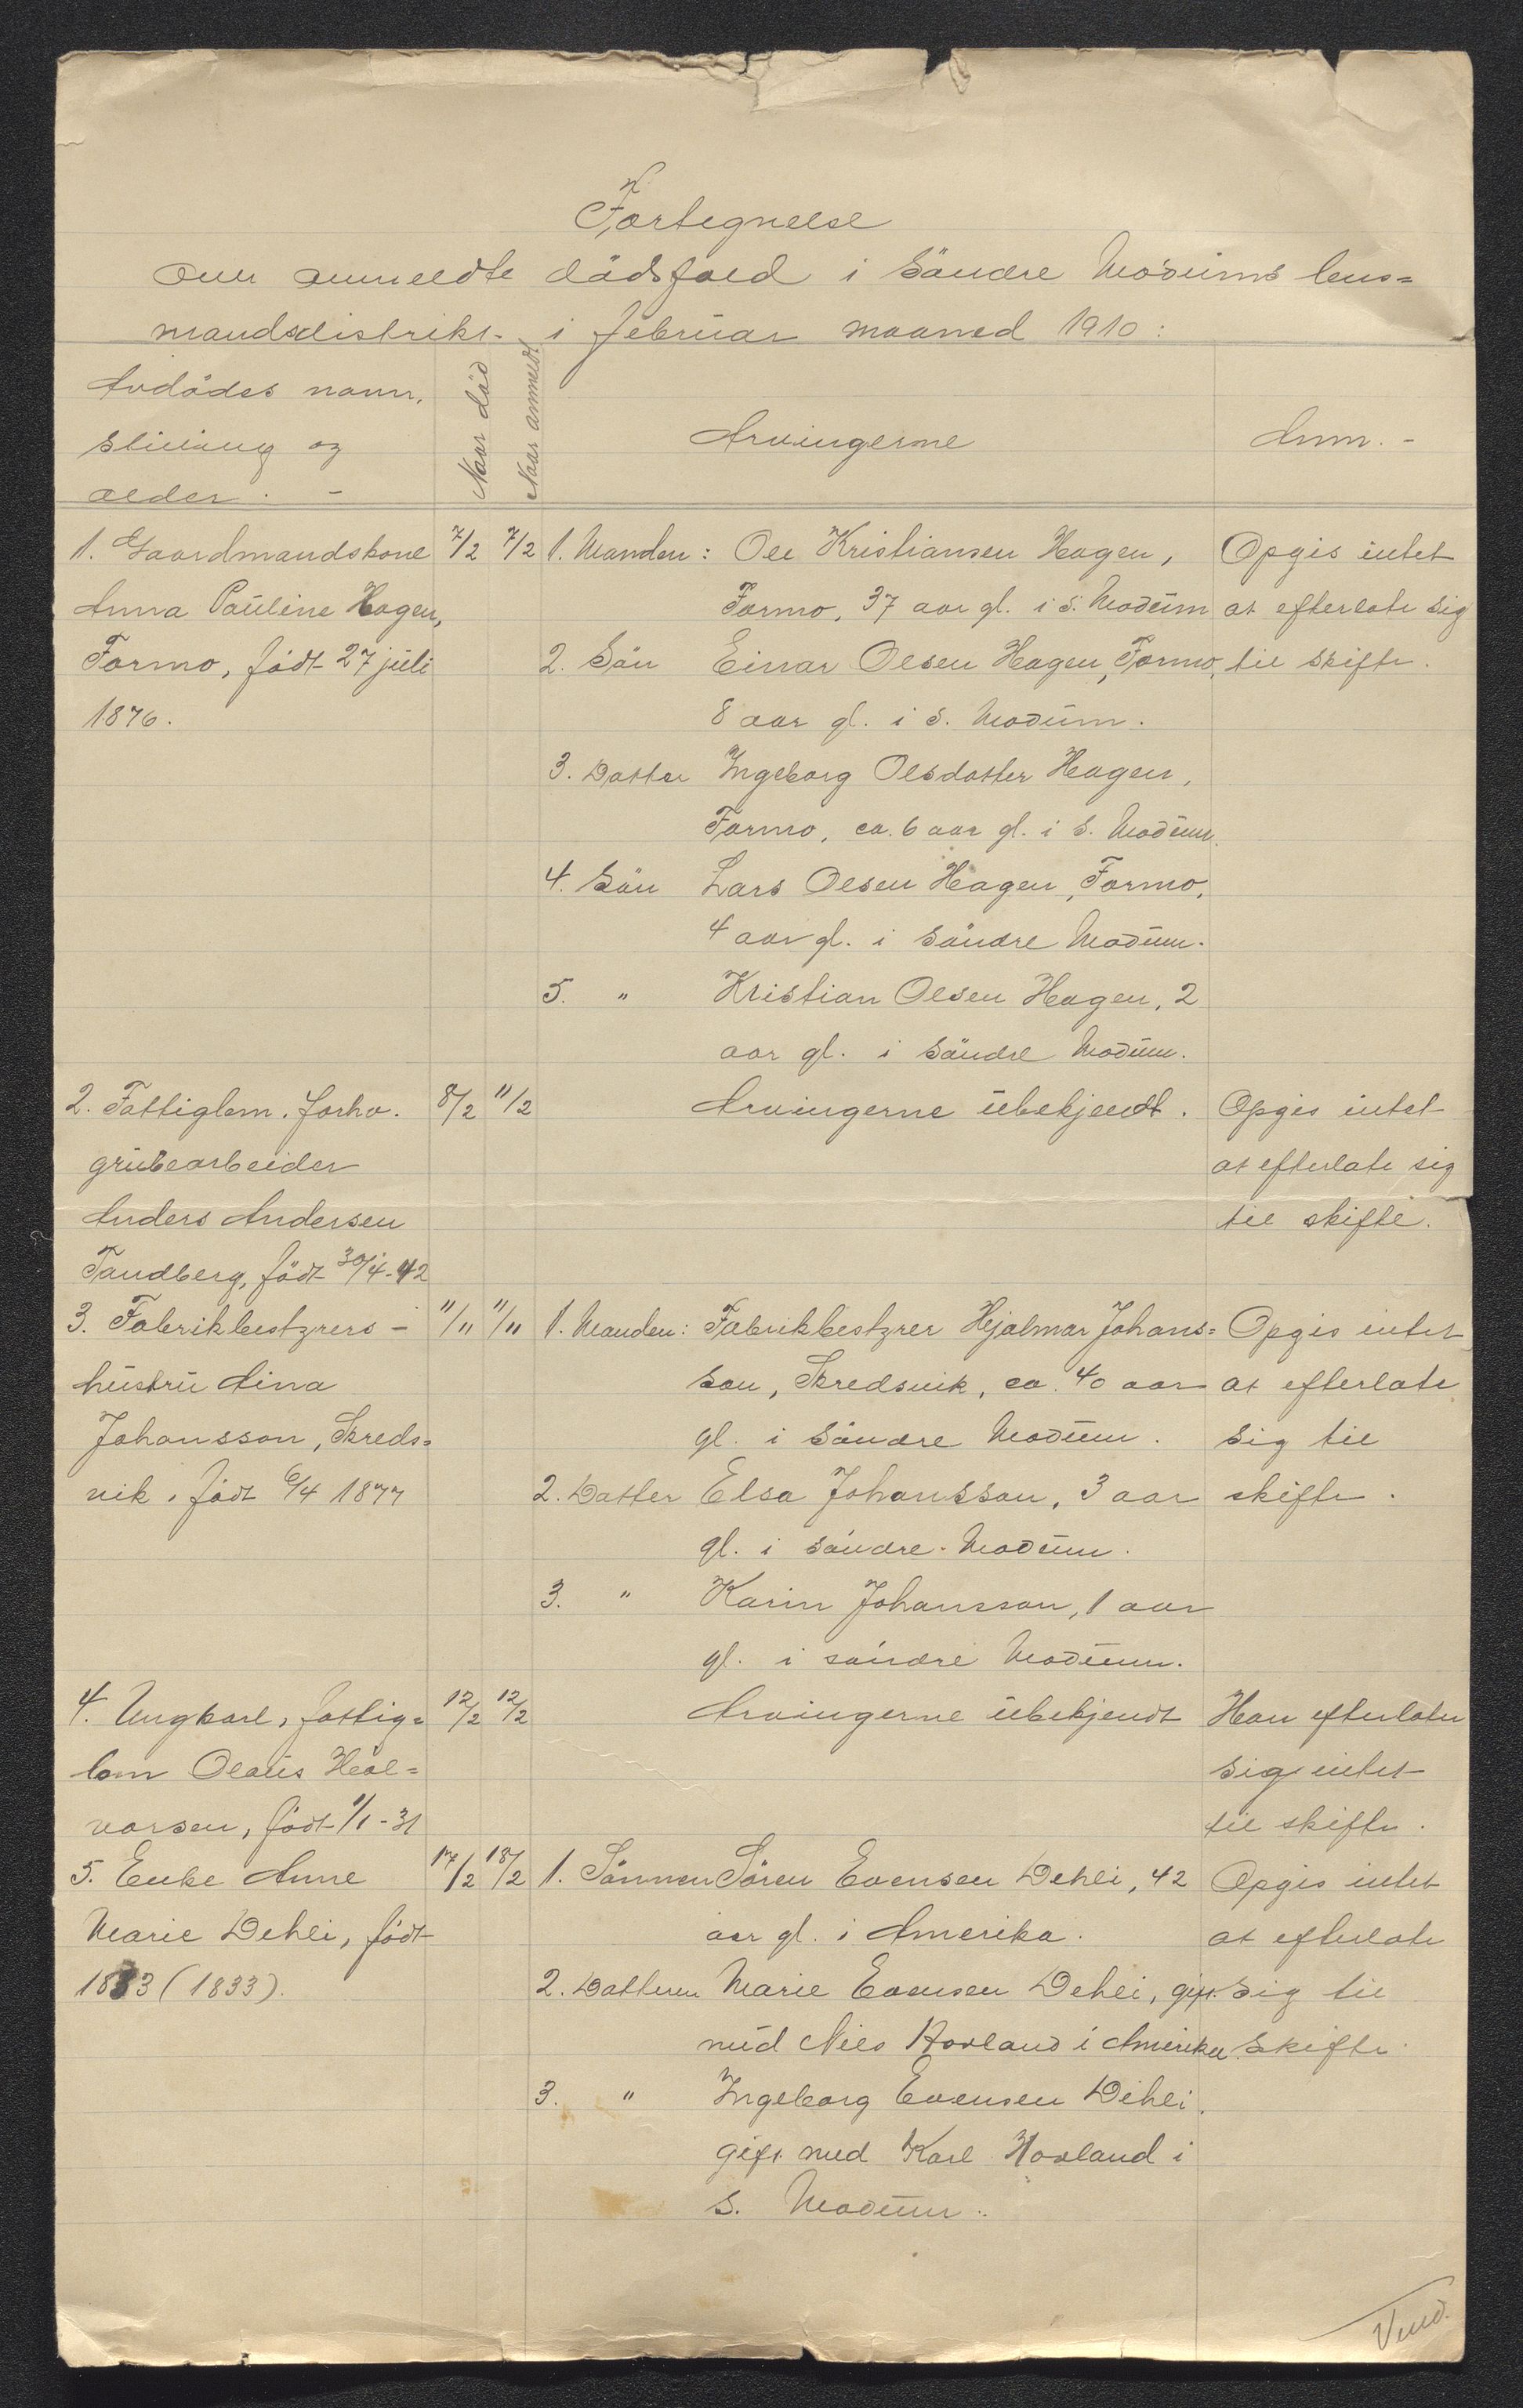 Fortegnelse
over anmeldte dödsfald i Söndre Modums lens=
mandsdistrikt i februar maaned 1910:
Avdödes navn,
stilling og
alder. -
Naar död
Naar anmeldt
Arvingerne
Anm. -
1. Gaardmandskone
Anna Pauline Hagen,
Formo, födt 27 juli
1876.
7/2 7/2
1. Manden: Ole Kristiansen Hagen,
Formo, 37 aar gl. i S. Modum
2. Sön Einar Olsen Hagen, Formo,
8 aar gl. i S. Modum.
3. Datter Ingeborg Olsdatter Hagen,
Formo, ca. 6 aar gl. i S. Modum.
4. Sön Lars Olsen Hagen, Formo,
4 aar gl. i Söndre Modum.
5. " Kristian Olsen Hagen, 2
aar gl. i Söndre Modum.
Opgis intet
at efterlate sig
til skifte.
2. Fattiglem. forhv.
grubearbeider
Anders Andersen
Tandberg, födt 30/4-42
8/2 11/2
Arvingerne ubekjendt.
Opgis intet
at efterlate sig
til skifte.
3. Fabrikbestyrers -
hustru Aina
Johansson, Skreds=
vik, födt 6/4 1877
11/11 11/11
1. Manden: Fabrikbestyrer Hjalmar Johans=
son, Skredsvik, ca. 40 aar
gl. i Söndre Modum.
2. Datter Elsa Johansson, 3 aar
gl. i Söndre Modum.
3. " Karin Johansson, 1 aar
gl. i söndre Modum.
Opgis intet
at efterlate
sig til
skifte.
4. Ungkarl, fattig=
lem Olaus Hal=
vorsen, födt 1/1-31
12/2 12/2
Arvingerne ubekjendt
Han efterlater
sig intet
til skifte.
5. Enke Anne
Marie Dehli, födt
1833 (1833).
17/2 18/2
1. Sönnen Sören Evensen Dehli, 42
aar gl. i Amerika.
2. Datteren Marie Evensen Dehli, gift
med Nils Hovland i Amerika.
3. " Ingeborg Evensen Dehli,
gift med Karl Hovland i
S. Modum.
Opgis intet
at efterlate
sig til
skifte.
Vend.